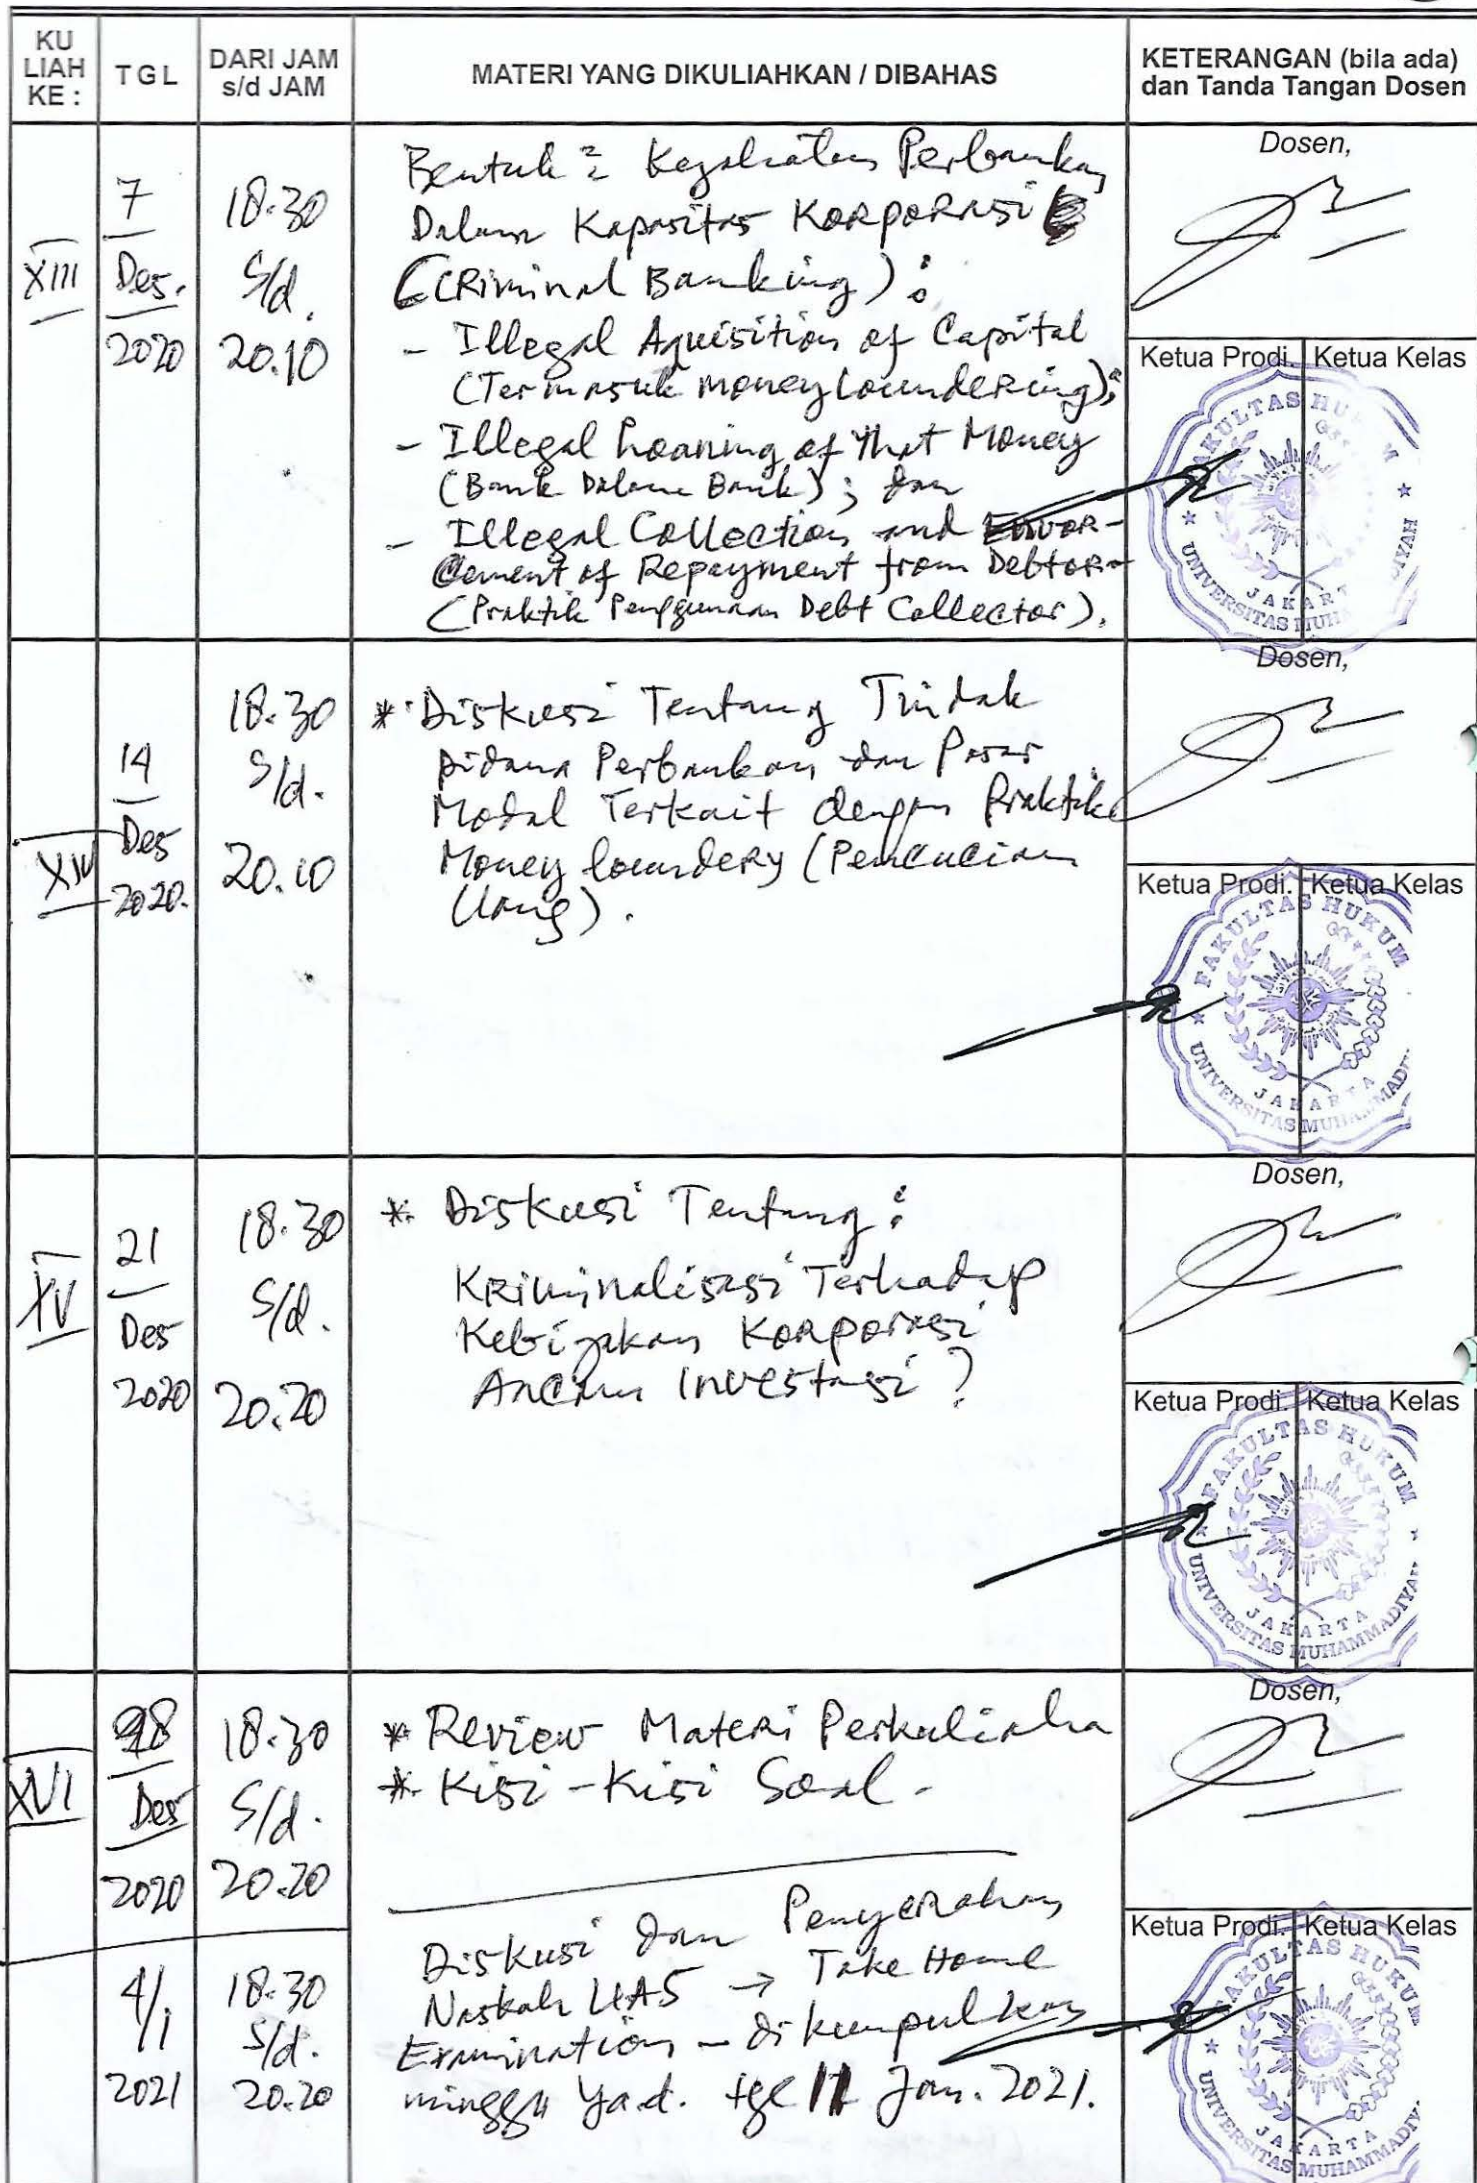 KU LIAH KE :
TGL
DARI JAM s/d JAM
MATERI YANG DIKULIAHKAN / DIBAHAS
KETERANGAN (bila ada) dan Tanda Tangan Dosen
XIII
7
Des.
2020
18.30
s/d.
20.10
Bentuk2 Kejahatan Perbankan
Dalam Kapasitas KORPORASI
(CRiminal Banking) :
- Illegal Aquisition of Capital
(Termasuk money loundering);
- Illegal Loaning of that Money
(Bank Dalam Bank); dan
- Illegal Collection and Envor-
cement of Repayment from Debtor-
(Praktik Penggunaan Debt Collector).
Dosen,
Ketua Prodi.
Ketua Kelas
FAKULTAS HU M
UNIVERSITAS MUH IYAH
JAKART
XIV
14
Des
2020.
18.30
s/d.
20.10
* Diskusi Tentang Tindak
pidana Perbankan dan Pasar
Modal Terkait dengan Praktik
Money loundery (Pencucian
Uang).
Dosen,
Ketua Prodi.
Ketua Kelas
FAKULTAS HUKUM
UNIVERSITAS MUH MADI
JAKAR
XV
21
Des
2020
18.30
s/d.
20.20
* Diskusi Tentang :
KRiminalisasi Terhadap
Kebijakan Korporasi
Ancam Investasi ?
Dosen,
Ketua Prodi.
Ketua Kelas
FAKULTAS HUKUM
UNIVERSITAS MUHAMMADIYAH
JAKARTA
XVI
28
Des
2020
18.30
s/d.
20.20
* Review Materi Perkuliaha
* Kisi - Kisi Soal -
Dosen,
4/1
2021
18.30
s/d.
20.20
Diskusi dan Penyerahan
Naskah UAS → Take Home
Examination - dikumpulkan
minggu yad. tgl 11 Jan. 2021.
Ketua Prodi.
Ketua Kelas
FAKULTAS HUKUM
UNIVERSITAS MUHAMMADIY
JAKARTA